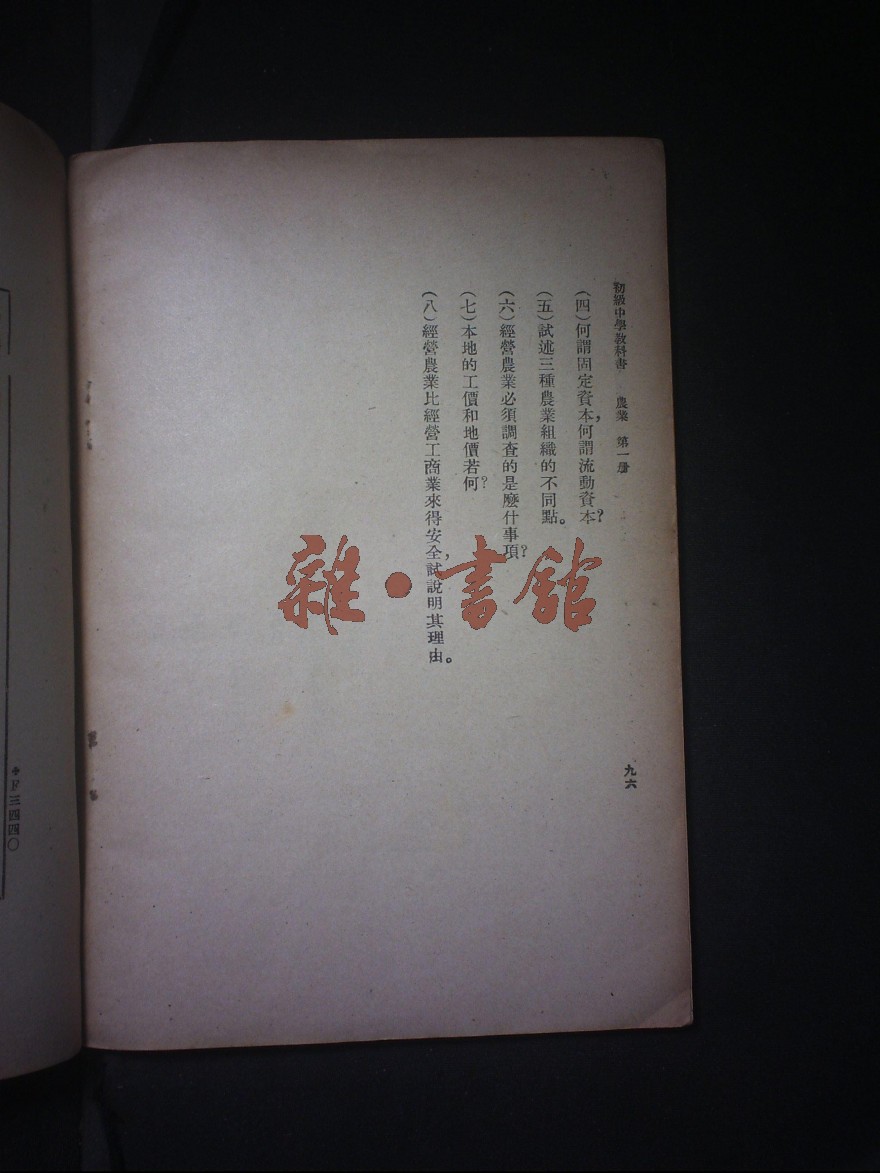 初級中學教科書 農業 第一册
(四)何謂固定資本,何謂流動資本?
(五)試述三種農業組織的不同點。
(六)經營農業必須調查的是麼什事項?
(七)本地的工價和地價若何?
(八)經營農業比經營工商業來得安全,試說明其理由。
九六
雜·書館
下三四四〇